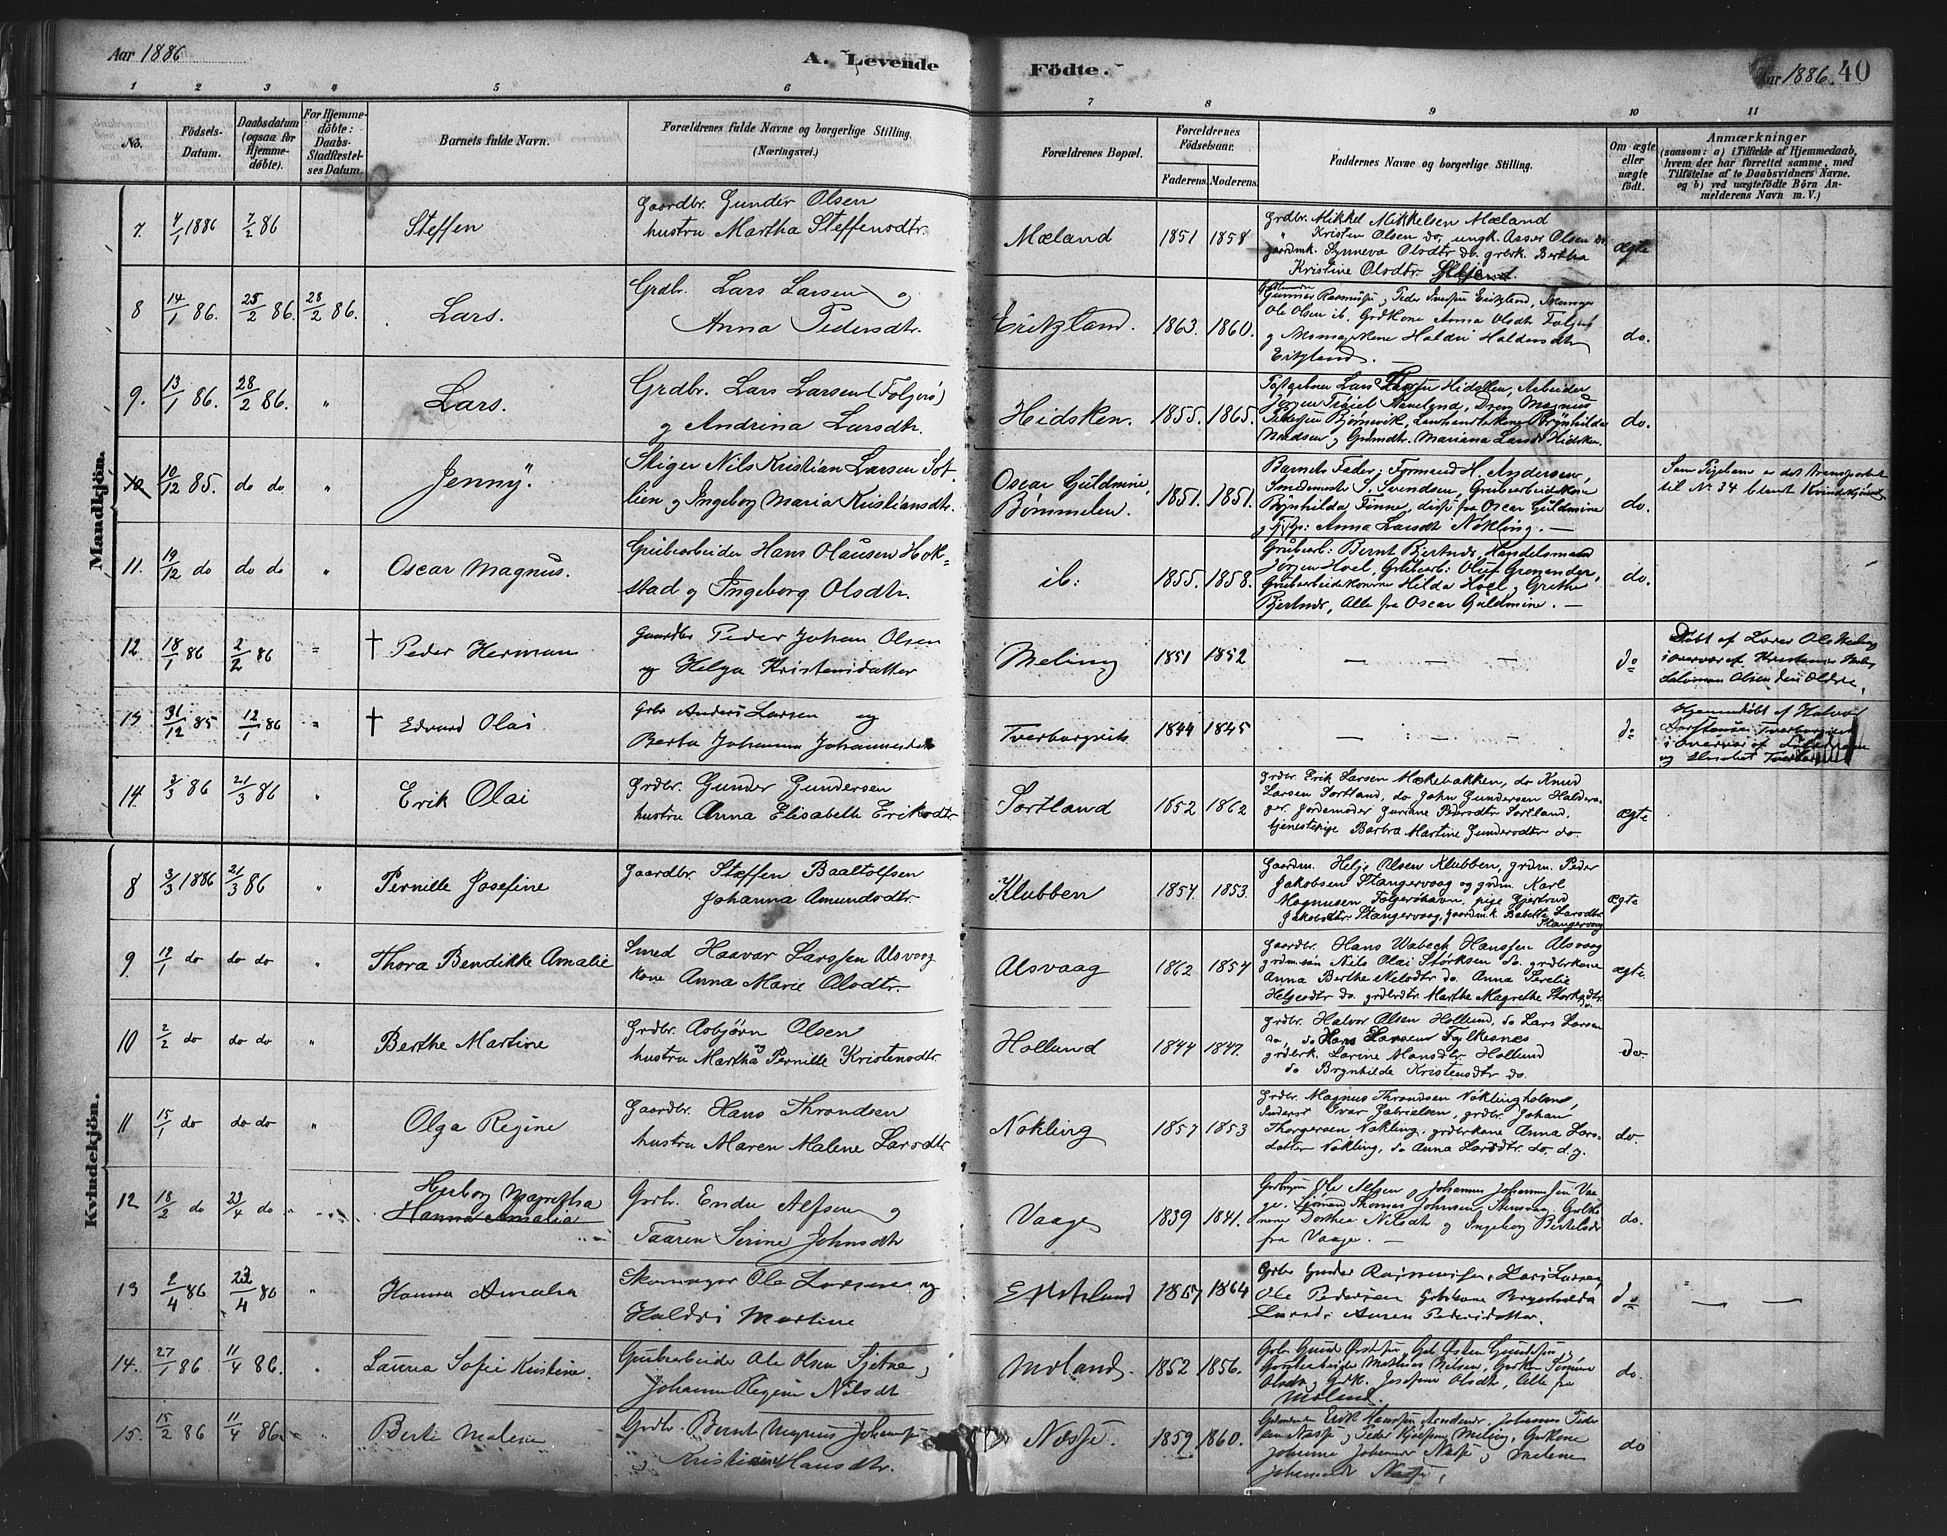 Aar 1886
A. Levende Födte.
Aar 1886. 40
1 2 3 4 5 6 7 8 9 10 11
No.
Födsels-Datum.
Daabsdatum (ogsaa for Hjemme-döbte).
For Hjemme-döbte: Daabs-Stadfæstel-ses Datum.
Barnets fulde Navn.
Forældrenes fulde Navne og borgerlige Stilling. (Næringsvei.)
Forældrenes Bopæl.
Forældrenes Födselsaar.
Faderens. Moderens.
Faddernes Navne og borgerlige Stilling.
Om ægte eller uægte födt.
Anmærkninger
(saasom: a) i Tilfælde af Hjemmedaab,
hvem der har forrettet samme, med
Tilföielse af to Daabsvidners Navne.
og b) ved uægtefödte Börn An-
melderens Navn m. V.)
Mandkjön.
7. 4/1 1886 7/2 86 Steffen
Gaardbr. Gunder Olsen
hustru Martha Steffensdtr.
Mæland 1851 1858
Grdbr. Mikkel Mikkelsen Mæland
" Kristen Olsen do, ungk. Asser Olsen do
gaardmk. Synneva Olsdtr do. grbrk. Bertha
Kristine Olsdtr
ægte
8 14/1 86. 25/2 86. 28/2 86. Lars.
Grdbr. Lars Larsen og
Anna Pedersdtr.
Eritzland. 1863. 1860.
Gunnar Rasmussen, Peder Iversen Eritzland,
Ole Olsen ib. Grdkone Anna Olsdt
do.
9. 13/1 86. 28/2 86. " Lars.
Grdbr. Lars Larsen (Folgerö)
og Andrina Larsdtr.
Hidsken. 1855. 1865.
Arbeider
Dreng Magnus
do.
10 10/12 85. do do " Jenny.
Stiger Nils Kristian Larsen Sot-
lien og Ingeborg Maria Kristiansdtr.
Oscar Guldmine, Bømmelen. 1851. 1851.
Barnets Fader; Formand H. Andersen,
Smedemester S. Svendsen, Grubearbeiderkone
Brynhilda Finne, disse fra Oscar Guldmine
og Anna Larsdt Nökling. —
do.
Som Pigebarn er det transporteret
til No 34 blandt Kvindekjönnet
11. 19/12 do do do " Oscar Magnus.
Grubearbeider Hans Olausen Hok-
stad og Ingeborg Olsdtr.
ib: 1855. 1858.
Grubearb: Bernt Bjertnæs, Handelsmand
Jörgen Hoel, Grubearb: Oluf Grenander,
Grubearbeiderkonerne Hilda Hoel og Grethe
Bjertnæs, Alle fra Oscar Guldmine. —
do.
12. 18/1 86 2/2 86 " † Peder Herman
Gaardbr Peder Johan Olsen
og Helga Kristensdatter
Meling 1851 1852
— — —
do
Döbt af Lærer Ole Meling
i overvær af
Salomon Olsen den Ældre,
13 31/12 85 12/1 86 " † Edvard Olai
Grbr Anders Larsen og
Berta Johanna Johannesdtr
Tverborgvik 1844 1845
— : — : —
do
Hjemmedöbt af Halvor
i overvær af
14. 2/3 86 21/3 86 " Erik Olai
Grdbr. Gunder Gundersen
hustru Anna Elisabeth Eriksdtr
Sortland 1852 1862
Grdbr. Erik Larsen Mækebakken, do Knud
Larsen Sortland, do John Gundersen Haldor-
Jordemoder Gurine Pedersdtr Sortland,
tjenestepige Barbra Martine Gundersdtr do.
ægte
Kvindekjön.
8 3/3 1886 21/3 86 " Pernille Josefine
Gaardbr. Steffen Baaltolfsen
Johanna Amundsdtr.
Klubben 1857. 1853.
Gaardm. Helje Olsen Klubben, grdm. Peder
Jakobsen Stangervaag og grdm. Karl
Magnussen Folgeröhavn, pige Gjertrud
Jakobsdtr. Stangervaag, gaardm.k. Babette Larsdtr
Stangervaag
ægte
9 12/1 do do do " Thora Bendikke Amalie
Smed Haavar Larssen Alsvaag
kone Anna Marie Olsdtr.
Alsvaag 1862 1857
Gaardbr. Hans Wabeck Hanssen Alsvaag
grdm.sön Nils Olai Størksen do. grdbrkone
Anna Berthe Nilsdtr do. Anna Perelie
Helgesdtr do. grdbrdtr Marthe Magrethe Storksdtr
ægte.
10 2/2 do do do " Berthe Martine
Grdbr. Asbjörn Olsen
hustru Martha Pernille Kristensdtr
Hollund 1844 1847.
Grdbr. Halvor Olsen Hollund, do Lars Larsen
do, do Hans Larsen Fylkesnes
grdbrk. Larine Monsdtr Hollund
do Brynhilde Kristensdtr do.
do.
11 15/1 do do do " Olga Regine
Gaardbr. Hans Throndsen
hustru Maren Malene Larsdtr
Nokling 1857 1853
Grdbr. Magnus Throndsen Nöklingholme,
Inderst Ivar Gabrielsen, grdbr. Johan
Thorgersen Nokling, grdbrkone Anna Lars-
datter Nokling, do Anna Larsdtr. do. d.y.
do
12 18/2 do 23/4 do " Herborg Magretha
Hanna Amalia
Grdbr. Endre Alfsen og
Taaren Serine Johnsdtr
Vaage 1839 1841.
Ole Alfsen og Johannes Johannesen Vaa-
ge. Sjömand Thomas Johnsen Stensvaag,
Dorthea Nilsdt og Ingeborg Bertelsdt
fra Vaage. —
do.
13 2/4 86 22/4 86 " Hanna Amalia
Skomager Ole Larsen og
Haldri Martine
Ekritzland 1867 1864
Grbr Gundar Rasmussen, Lars Larsen,
Ole Pedersen Grbrkone Brynhilda
Larsd: Anna Pedersdatter.
do
— —
14. 27/1 86 11/4 86. " Laura Sofie Kristine.
Grubearbeider Ole Olsen Sjetne,
Johanna Regine Nilsdt
Moland. 1852 1856.
Grubearbeider Mathias Nilsen,
Olsdt og Grdk. Josefine Olsdt, Alle fra
Moland.
do.
15. 15/2 86 11/4 86. " Berte Malene
Grdbr. Bernt Magnus Johansen
og Kristiane Hansdtr.
Næsse. 1859 1860.
Erik Hanssen Johannes Peder
sen Næsse, Peder Meling, Grkone
Johanne Næsse, Malene
Johannesdt Næsse,
do